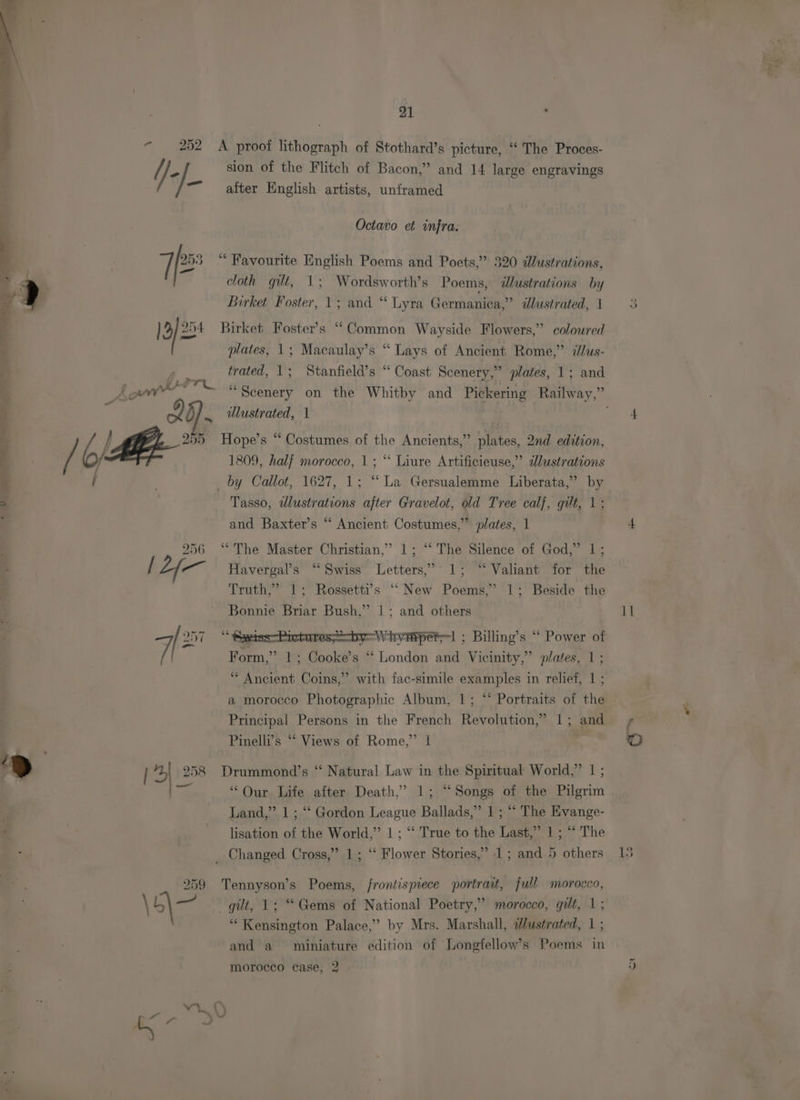 21
252 A proof lithograph of Stothard's picture, “ The Proces-
sion of the Flitch of Bacon,” and 14 large engravings
after English artists, unframed
Octavo et infra.
7/ 253 “ Favourite English Poems and Poets,” 320 illustrations,
cloth gilt, 1; Wordsworth's Poems, illustrations by
Birket Foster, 1; and “ Lyra Germanica,” illustrated, 1 3
13/ 254 Birket Foster's “ Common Wayside Flowers,” coloured
plates, 1; Macaulay's “ Lays of Ancient Rome,” illus-
trated, 1; Stanfield's “ Coast Scenery,” plates, 1; and
“ Scenery on the Whitby and Pickering Railway,”
illustrated, 1 4
255 Hope's “ Costumes of the Ancients,” plates, 2nd edition,
1809, half morocco, 1; “ Liure Artificieuse,” illustrations
by Callot, 1627, 1; “ La Gersualemme Liberata,” by
Tasso, illustrations after Gravelot, old Tree calf, gilt, 1;
and Baxter's “ Ancient Costumes,” plates, 1 4
12/- 256 “ The Master Christian,” 1; “ The Silence of God,” 1;
Havergal's “ Swiss Letters,” 1; “ Valiant for the
Truth,” 1; Rossetti's “ New Poems,” 1; Beside the
Bonnie Briar Bush,” 1; and others 11
7/ 257 “ Swiss Pictures,” by Whymper, 1; Billing's “ Power of
Form,” 1; Cooke's “ London and Vicinity,” plates, 1;
“ Ancient Coins,” with fac-simile examples in relief, 1;
a morocco Photographic Album, 1; “ Portraits of the
Principal Persons in the French Revolution,” 1; and
Pinelli's “ Views of Rome,” 1
13/ 258 Drummond's “ Natural Law in the Spiritual World,” 1;
“ Our Life after Death,” 1; “ Songs of the Pilgrim
Land,” 1; “ Gordon League Ballads,” 1; “ The Evange-
lisation of the World,” 1; “ True to the Last,” 1; “ The
Changed Cross,” 1; “ Flower Stories,” 1; and 5 others 13
259 Tennyson's Poems, frontispiece portrait, full morocco,
gilt, 1; “ Gems of National Poetry,” morocco, gilt, 1;
“ Kensington Palace,” by Mrs. Marshall, illustrated, 1;
and a miniature edition of Longfellow's Poems in
morocco case, 2 5